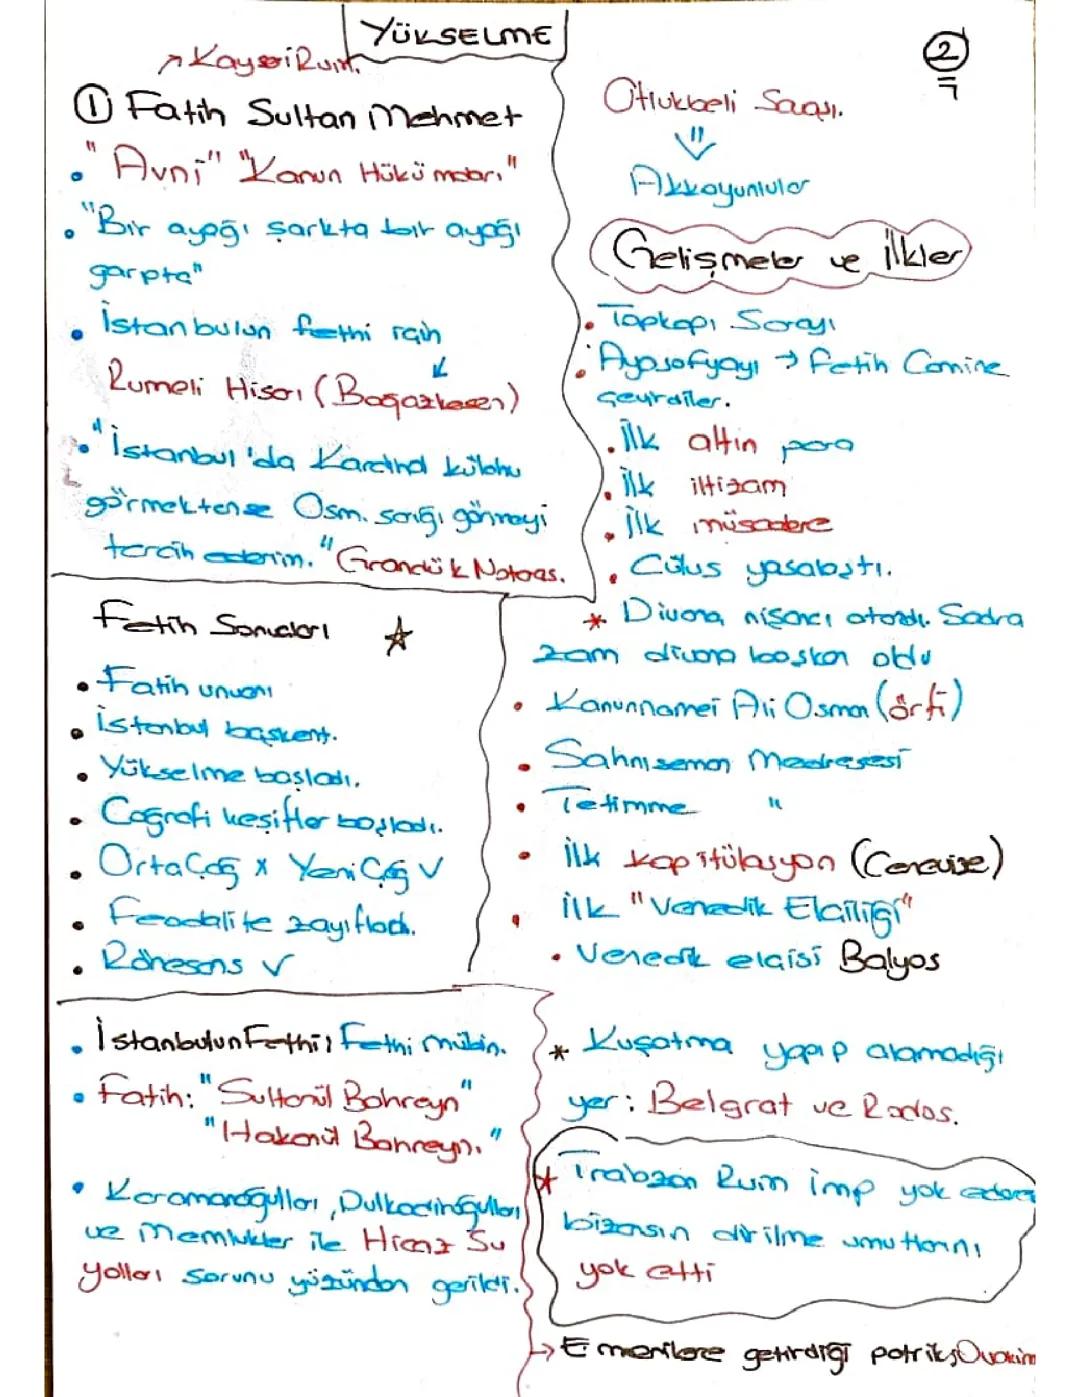 YÜKSELME
2
↗ KayseriRum.
① Fatih Sultan Mehmet
• "Avni" "Kanun Hükümdarı"
• "Bir ayağı şarkta bir ayağı
garpta"
• İstanbulun fethi için
Rumeli Hisarı (Boğazkesen)
• "İstanbul'da Kardinal külahı
görmektense Osm. sarığı görmeyi
tercih ederim." Grandük Notaras.
Fetih Sonuçları ☆
• Fatih unvanı
• İstanbul başkent.
• Yükselme başladı.
• Coğrafi keşifler başladı.
• OrtaÇağ x YeniÇağ √
• Feodalite zayıfladı.
• Rönesans √
• İstanbulun Fethi: Fethi mübin.
• Fatih: "Sultanül Bahreyn"
"Hakanül Bahreyn."
• Karamanoğulları, Dulkadiroğulları
ve Memlükler ile Hicaz Su
yolları sorunu yüzünden gerildi.
Otlukbeli Savaşı.
⇓
Akkoyunlular
Gelişmeler ve İlkler
• Topkapı Sarayı
• Ayasofyayı → Fetih Camine
çevirdiler.
• İlk altın para
• İlk iltizam
• İlk müsadere
• Cülus yasalaştı.
* Divana nişancı atandı. Sadra
zam divana başkan oldu
• Kanunnamei Ali Osman (örfi)
• Sahnıseman Medresesi
• Tetimme "
• İlk kapitülasyon (Ceneviz)
• İlk "Venedik Elçiliği"
• Venedik elçisi Balyos
* Kuşatma yapıp alamadığı
yer: Belgrat ve Rodos.
* Trabzon Rum imp yok ederek
bizansın dirilme umutlarını
yok etti
→ Ermenilere getirdiği patrik: Ovakim